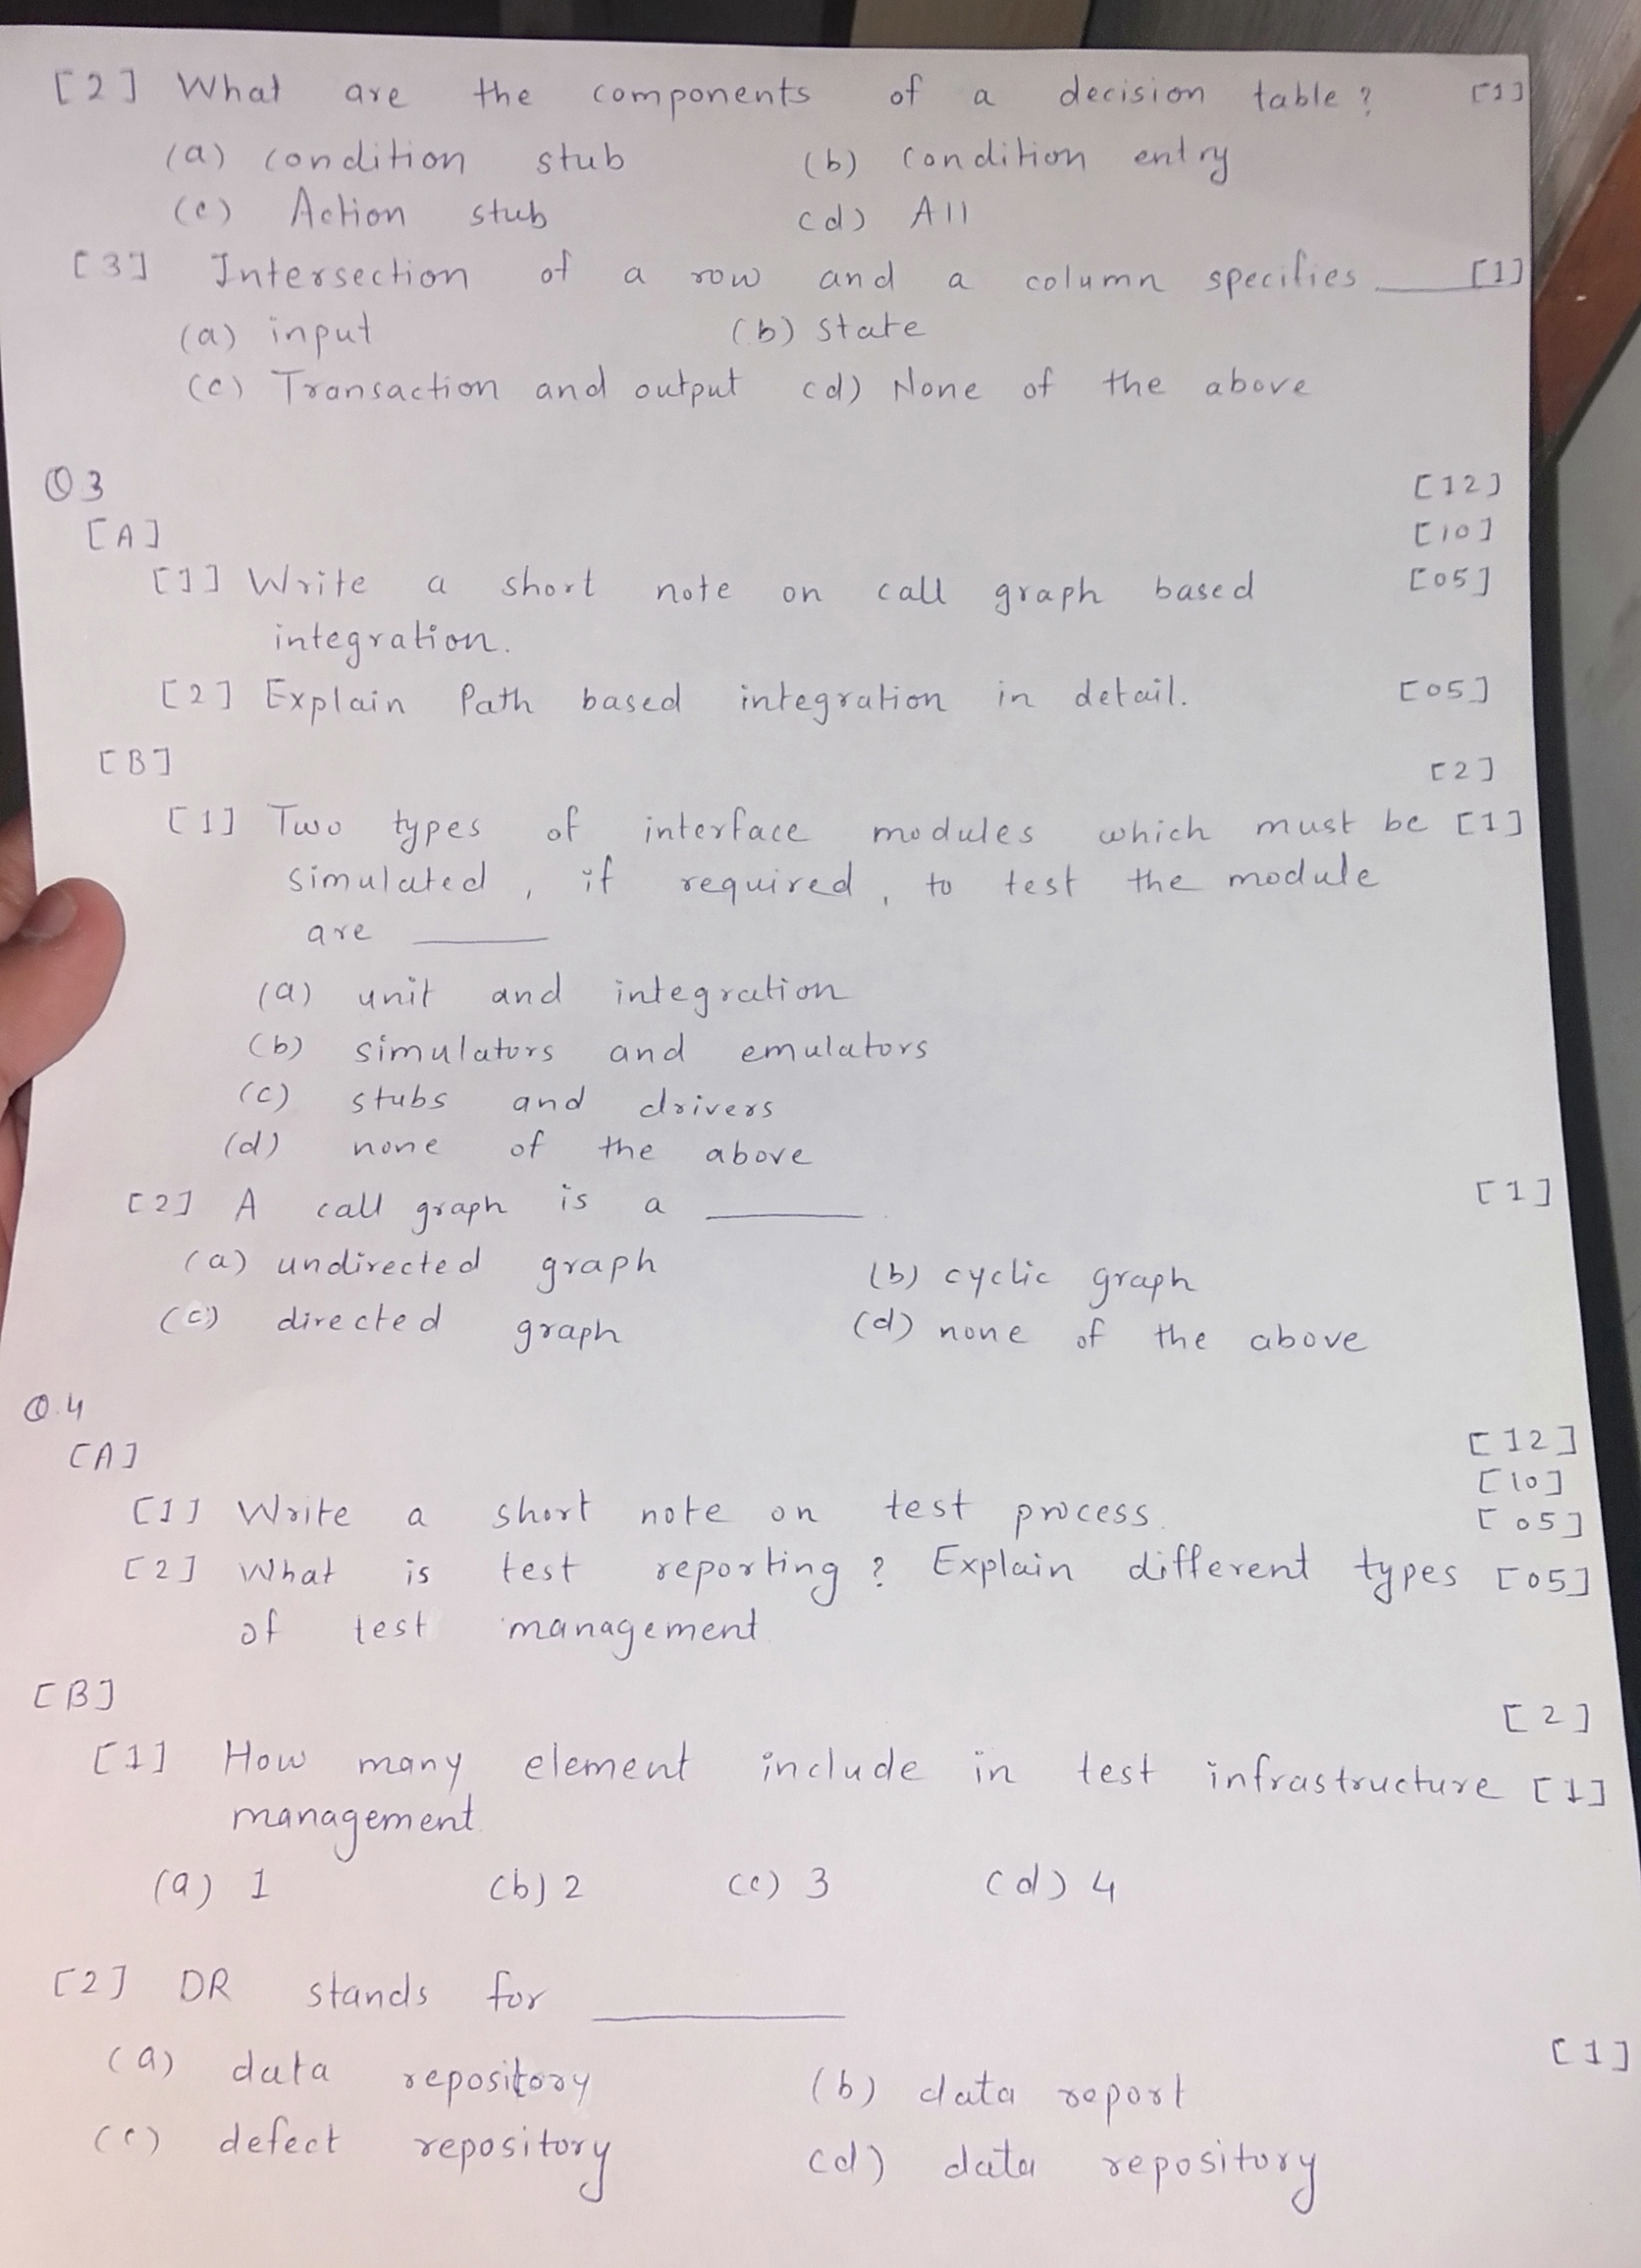 [2] What are the components of a decision table? [1]
(a) condition stub (b) condition entry
(c) Action stub (d) All
[3] Intersection of a row and a column specifies ____ [1]
(a) input (b) state
(c) Transaction and output (d) None of the above
Q3 [12]
[A] [10]
[1] Write a short note on call graph based [05]
integration.
[2] Explain Path based integration in detail. [05]
[B] [2]
[1] Two types of interface modules which must be [1]
simulated, if required, to test the module
are ____
(a) unit and integration
(b) simulators and emulators
(c) stubs and drivers
(d) none of the above
[2] A call graph is a ____. [1]
(a) undirected graph (b) cyclic graph
(c) directed graph (d) none of the above
Q.4 [12]
[A] [10]
[1] Write a short note on test process. [05]
[2] What is test reporting? Explain different types [05]
of test management
[B] [2]
[1] How many element include in test infrastructure [1]
management.
(a) 1 (b) 2 (c) 3 (d) 4
[2] DR stands for ____ [1]
(a) data repository (b) data report
(c) defect repository (d) data repository